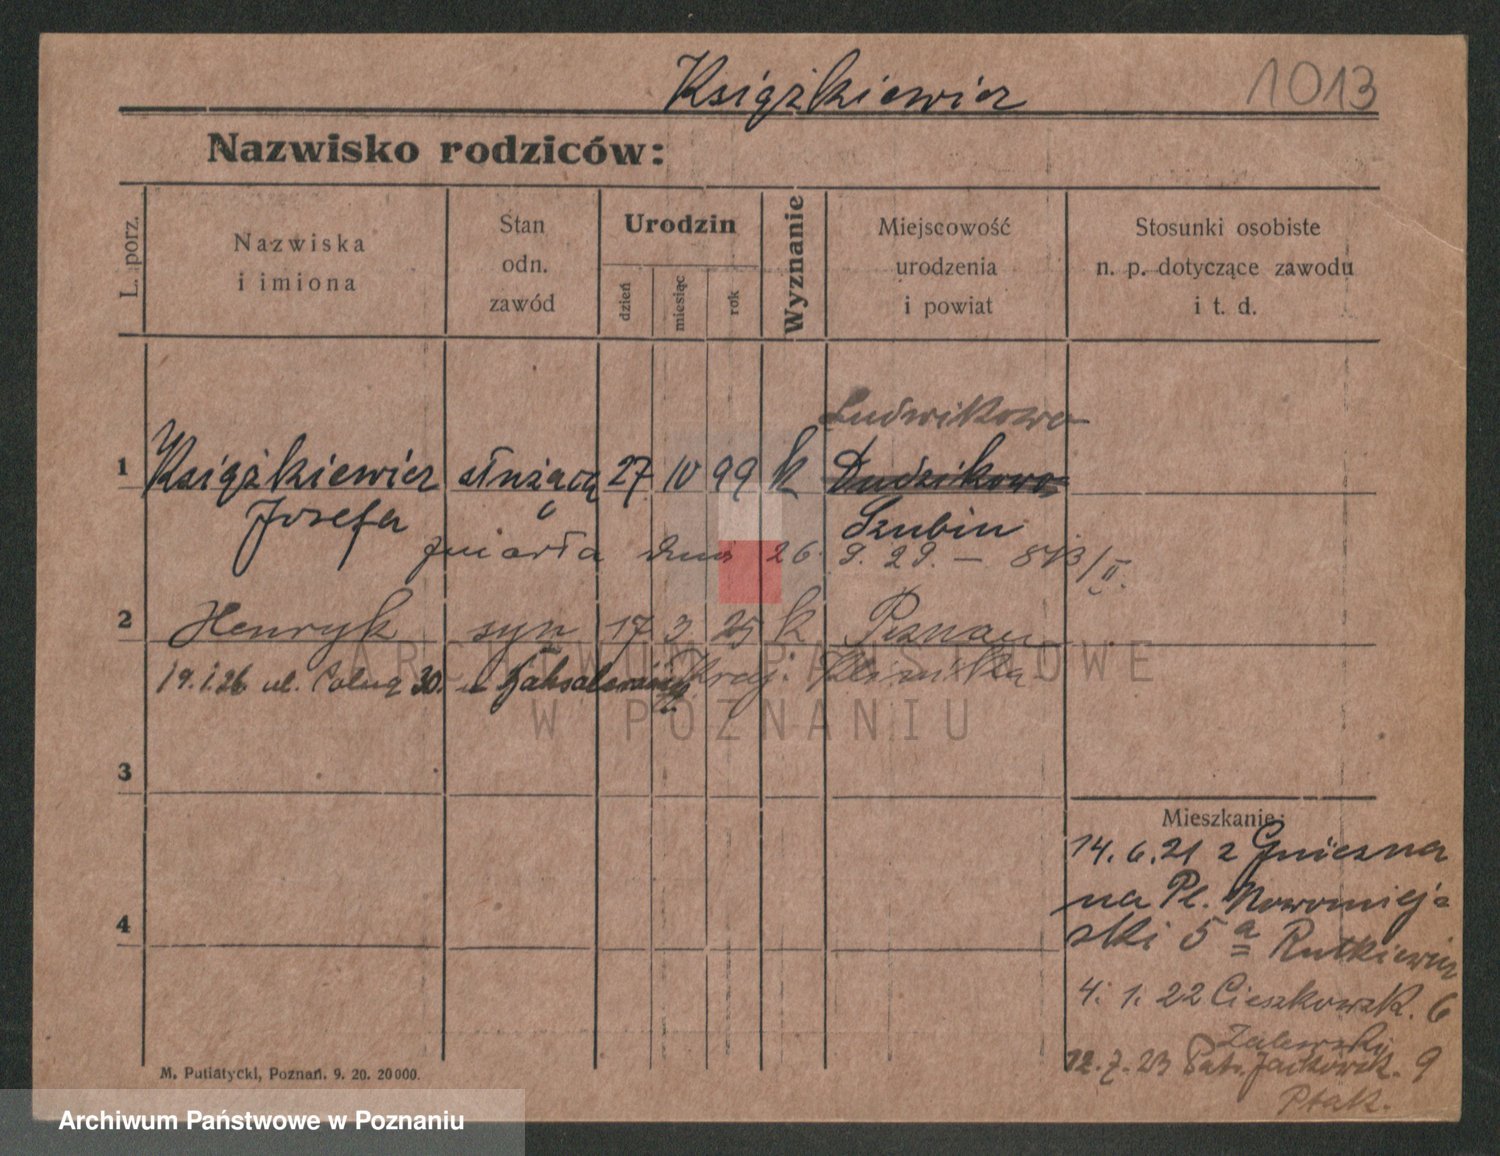 Książkiewicz 1013
Nazwisko rodziców:
L. porz.
Nazwiska
i imiona
Stan
odn.
zawód
Urodzin
dzień
miesiąc
rok
Wyznanie
Miejscowość
urodzenia
i powiat
Stosunki osobiste
n. p. dotyczące zawodu
i t. d.
Ludwikowo
1 Książkiewicz służącą 27 IV 99 k Dudzikowo
Józefa Szubin
zmarła dnia 26. 9. 29. — 843/II.
2 Henryk syn 17 3 25 k Poznań
19.1.26 ul. 30. u
ARCHIWUM PAŃSTWOWE
W POZNANIU
3
Mieszkanie:
14.6.21 z Gniezna
na Pl. Nowomiej-
ski 5a Rutkiewicz
4
4. 1. 22 Cieszkowsk. 6
Zalewski
12.7.23 Patr. Jackowsk. 9
Ptak.
M. Putiatycki, Poznań. 9. 20. 20000.
Archiwum Państwowe w Poznaniu